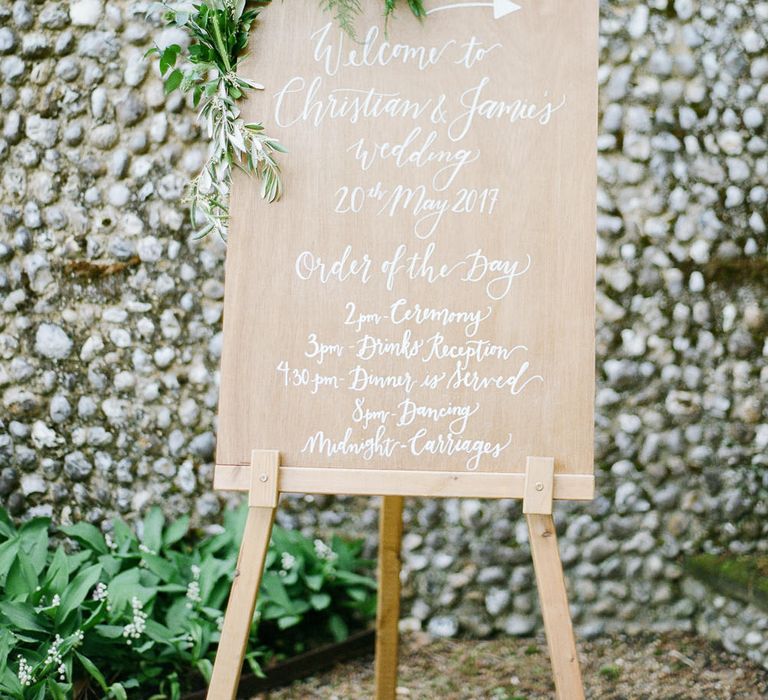 Welcome to
Christian & Jamie's
Wedding
20th May 2017
Order of the Day
2pm - Ceremony
3pm - Drinks Reception
4:30pm - Dinner is Served
8pm - Dancing
Midnight - Carriages